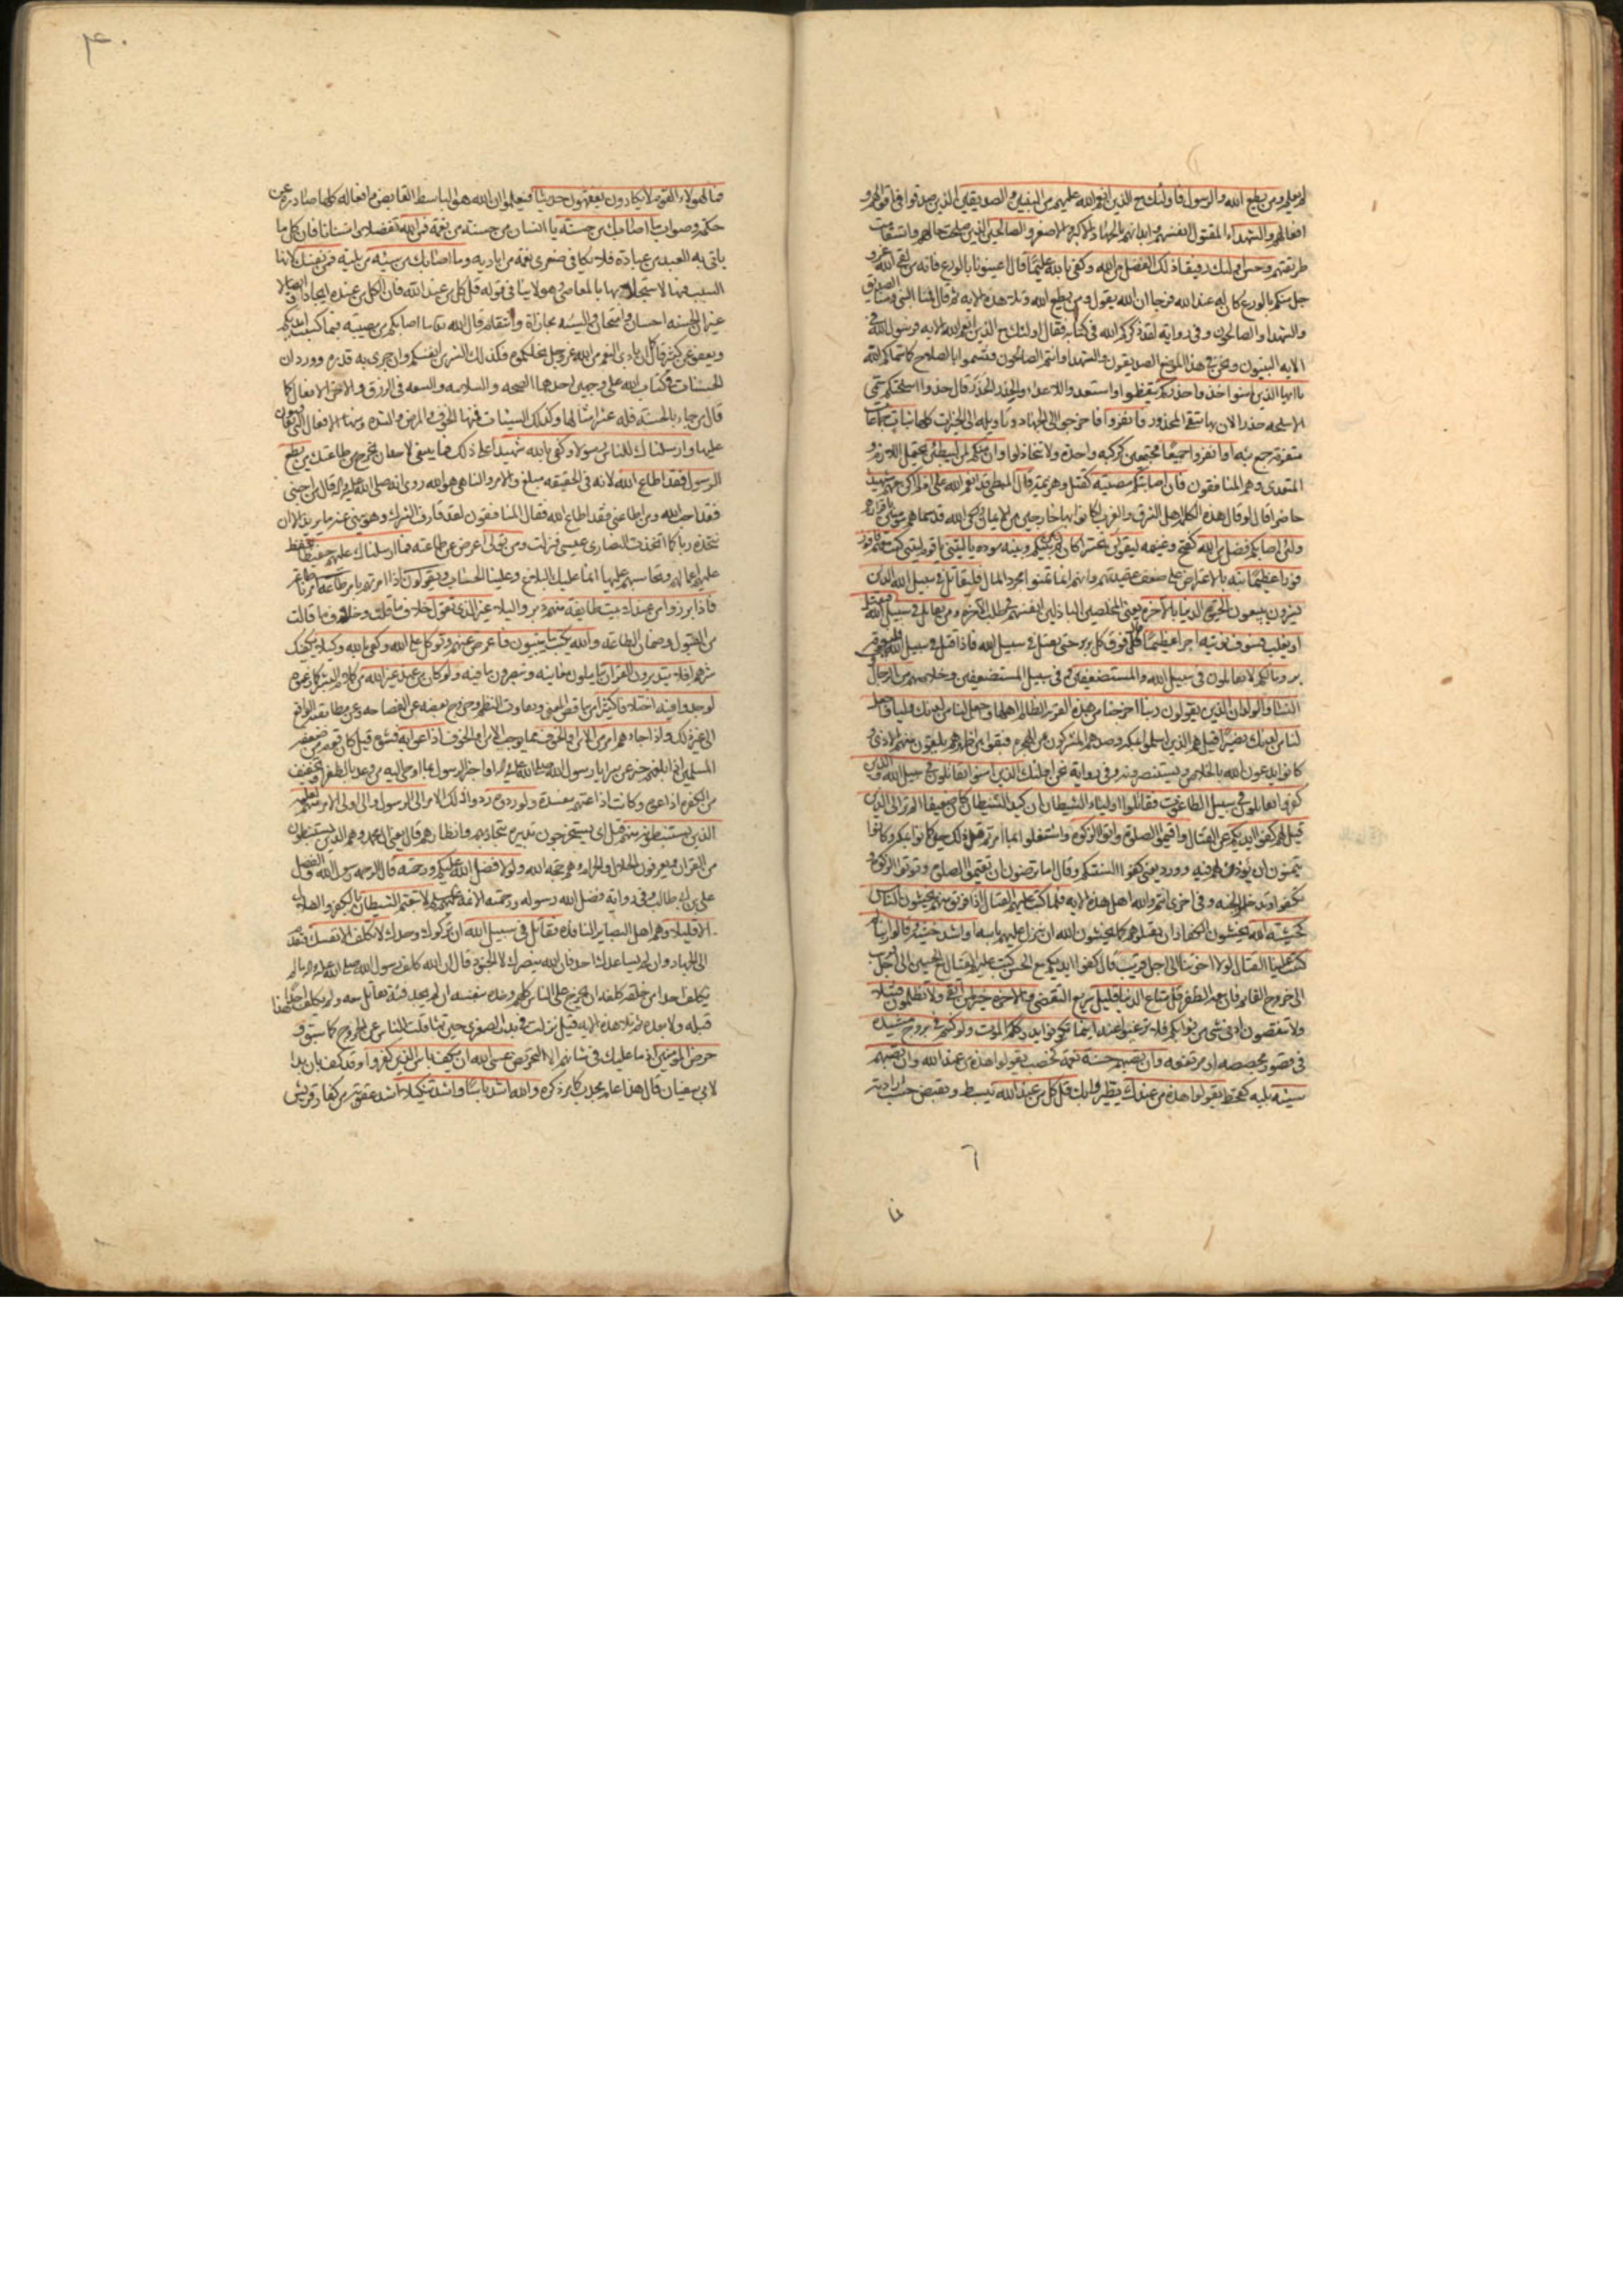 ومن يطع الله والرسول فاولئك مع الذين انعم الله عليهم من النبيين والصديقين الذين صدقوا في اقوالهم و
افعالهم والشهداء المقتول انفسهم وابدانهم بالجهاد الاكبر والاصغر والصالحين الذين صلحت حالهم واستقامت
طريقتهم وحسن اولئك رفيقا ذلك الفضل من الله وكفى بالله عليما قال اعينونا بالورع فانه من لقي الله عز و
جل منكم بالورع كان له عند الله فرجا ان الله يقول ومن يطع الله وتلا هذه الاية ثم قال فمنا النبي ومنا الصديق
والشهداء والصالحون وفي رواية لقد ذكركم الله في كتابه فقال اولئك مع الذين انعم الله الاية فرسول الله في
الاية النبيون ونحن في هذا الموضع الصديقون والشهداء وانتم الصالحون فتسموا بالصلاح كما سماكم الله
يا ايها الذين امنوا خذوا حذركم تيقظوا واستعدوا للاعداء والحذر الحذر قال خذوا اسلحتكم سمى
الاسلحة حذرا لان بها يتقى المحذور فانفروا فاخرجوا الى الجهاد وتاويله الى الخيرات كلها ثبات جماعات
متفرقة جمع ثبة او انفروا جميعا مجتمعين كركبة واحدة ولا تتخاذلوا وان منكم لمن ليبطئن يحتمل اللازم و
المتعدي وهم المنافقون فان اصابتكم مصيبة كقتل وهزيمة قال المبطئ قد انعم الله علي اذ لم اكن معهم شهيدا
حاضرا قال لو قال هذه الكلمة اهل الشرق والغرب لكانوا بها خارجين من الايمان ولكن الله قد سماهم مؤمنين باقرارهم
ولئن اصابكم فضل من الله كفتح وغنيمة ليقولن تحسرا كان لم تكن بينكم وبينه مودة يا ليتني يا قوم ليتني كنت معهم فافوز
فوزا عظيما نبه بالاعتراض على ضعف عقيدتهم وانهم انما تمنوا لمجرد المال فليقاتل في سبيل الله الذين
يشرون يبيعون الحيوة الدنيا بالاخرة يعني المخلصين الباذلين انفسهم في طلب الاخرة ومن يقاتل في سبيل الله فيقتل
او يغلب فسوف نؤتيه اجرا عظيما قال فوق كل بر بر حتى يقتل في سبيل الله فاذا قتل في سبيل الله فليس فوقه
بر وما لكم لا تقاتلون في سبيل الله والمستضعفين وفي سبيل المستضعفين وخلاصهم من الرجال
والنساء والولدان الذين يقولون ربنا اخرجنا من هذه القرية الظالم اهلها واجعل لنا من لدنك وليا واجعل
لنا من لدنك نصيرا قيل هم الذين اسلموا بمكة وصدهم المشركون عن الهجرة فبقوا بين اظهرهم يلقون منهم الاذى و
كانوا يدعون الله بالخلاص ويستنصرونه وفي رواية نحن اولئك الذين امنوا يقاتلون في سبيل الله والذين
كفروا يقاتلون في سبيل الطاغوت فقاتلوا اولياء الشيطان ان كيد الشيطان كان ضعيفا الم تر الى الذين
قيل لهم كفوا ايديكم عن القتال واقيموا الصلوة واتوا الزكوة واشتغلوا بما امرتم قيل ذلك حين كانوا بمكة وكانوا
يتمنون ان يؤذن لهم فيه وورد يعني كفوا السنتكم وقال اما ترضون ان تقيموا الصلوة وتؤتوا الزكوة و
تكفوا وتدخلوا الجنة وفي اخرى انتم والله اهل هذه الاية فلما كتب عليهم القتال اذا فريق منهم يخشون الناس
كخشية الله يخشون الكفار ان يقتلوهم كما يخشون الله ان ينزل عليهم باسه او اشد خشية وقالوا ربنا لم
كتبت علينا القتال لولا اخرتنا الى اجل قريب قال كفوا ايديكم مع الحسن كتب عليهم القتال مع الحسين الى اجل قريب
الى خروج القائم فان معه الظفر قل متاع الدنيا قليل سريع التقضي والاخرة خير لمن اتقى ولا تظلمون فتيلا
ولا تنقصون ادنى شيء من ثوابكم فلا ترغبوا عنه اينما تكونوا يدرككم الموت ولو كنتم في بروج مشيدة
في قصور مجصصة او مرتفعة وان تصبهم حسنة نعمة كخصب يقولوا هذه من عند الله وان تصبهم
سيئة بلية كقحط يقولوا هذه من عندك يتطيروا بك قل كل من عند الله يبسط ويقبض حسب ارادته
فما لهؤلاء القوم لا يكادون يفقهون حديثا فيعلموا ان الله هو الباسط القابض وافعاله كلها صادرة عن
حكمة وصواب ما اصابك من حسنة يا انسان من حسنة من نعمة فمن الله تفضلا وامتنانا فان كل ما
ياتي به العبد من عبادة فلا يكافي صغرى نعمة من اياديه وما اصابك من سيئة من بلية فمن نفسك لانها
السبب فيها لاستجلابها بالمعاصي وهو لا ينافي قوله قل كل من عند الله فان الكل من عنده ايجادا وايصالا
غير ان الحسنة احسان وامتحان والسيئة مجازاة وانتقام قال الله تعالى ما اصابكم من مصيبة فبما كسبت ايديكم
ويعفو عن كثير قال كما ان بادي النعم من الله عز وجل نحلكموه فكذلك الشر من انفسكم وان جرى به قدره وورد ان
الحسنات في كتاب الله على وجهين احدهما الصحة والسلامة والسعة في الرزق والاخر الافعال كما
قال من جاء بالحسنة فله عشر امثالها وكذلك السيئات فمنها الخوف والمرض والشدة ومنها الافعال التي يعاقبون
عليها وارسلناك للناس رسولا وكفى بالله شهيدا على ذلك فما ينبغي لاحد ان يخرج من طاعتك من يطع
الرسول فقد اطاع الله لانه في الحقيقة مبلغ والامر والناهي هو الله روي انه صلى الله عليه واله قال من احبني
فقد احب الله ومن اطاعني فقد اطاع الله فقال المنافقون لقد قارف الشرك وهو ينهى عنه ما يريد الا ان
نتخذه ربا كما اتخذت النصارى عيسى فنزلت ومن تولى اعرض عن طاعته فما ارسلناك عليهم حفيظا تحفظ
عليهم اعمالهم وتحاسبهم عليها انما عليك البلاغ وعلينا الحساب ويقولون اذا امرتهم بامر طاعة امرنا طاعة
فاذا برزوا من عندك بيت طائفة منهم دبروا ليلا غير الذي تقول خلاف ما قلت وخلاف ما قالت
من القبول وضمان الطاعة والله يكتب ما يبيتون فاعرض عنهم وتوكل على الله وكفى بالله وكيلا يكفيك
شرهم افلا يتدبرون القران يتاملون معانيه ويتبصرون ما فيه ولو كان من عند غير الله من كلام البشر كما زعموه
لوجدوا فيه اختلافا كثيرا من تناقض المعنى وتفاوت النظم وخروج بعضه عن الفصاحة وعن مطابقة الواقع
الى غير ذلك واذا جاءهم امر من الامن او الخوف مما يوجب الامن او الخوف اذاعوا به فشوه قيل كان قوم من ضعفة
المسلمين اذا بلغهم خبر عن سرايا رسول الله صلى الله عليه واله او اخبرهم الرسول بما اوحى اليه من وعد بالظفر او تخويف
من الكفرة اذاعوه وكانت اذاعتهم مفسدة ولو ردوه ردوا ذلك الامر الى الرسول والى اولي الامر منهم لعلمه
الذين يستنبطونه منهم قيل اي يستخرجون تدبيره بتجاربهم وانظارهم قال يعني ال محمد وهم الذين يستنبطون
من القران ويعرفون الحلال والحرام وهم حجة الله ولولا فضل الله عليكم ورحمته قال الرحمة رسول الله والفضل
علي بن ابي طالب وفي رواية فضل الله رسوله ورحمته الائمة عليهم السلام لاتبعتم الشيطان بالكفر والضلال
الا قليلا وهم اهل البصائر النافذة فقاتل في سبيل الله ان تركوك وحدك لا تكلف الا نفسك فتقدم
الى الجهاد وان لم يساعدك احد فان الله ينصرك لا الجنود قال ان الله كلف رسول الله صلى الله عليه واله ما لم
يكلف احدا من خلقه كلفه ان يخرج على الناس كلهم وحده بنفسه ان لم يجد فئة تقاتل معه ولم يكلف احدا هذا
قبله ولا بعده ثم تلا هذه الاية قيل نزلت في بدر الصغرى حين تثاقلت الناس عن الخروج كما سبق و
حرض المؤمنين اذ ما عليك في شانهم الا التحريض عسى الله ان يكف باس الذين كفروا وقد كف بان بدا
لابي سفيان قال هذا عام مجدب كما مر ذكره والله اشد باسا واشد تنكيلا اشد عقوبة من كفار قريش